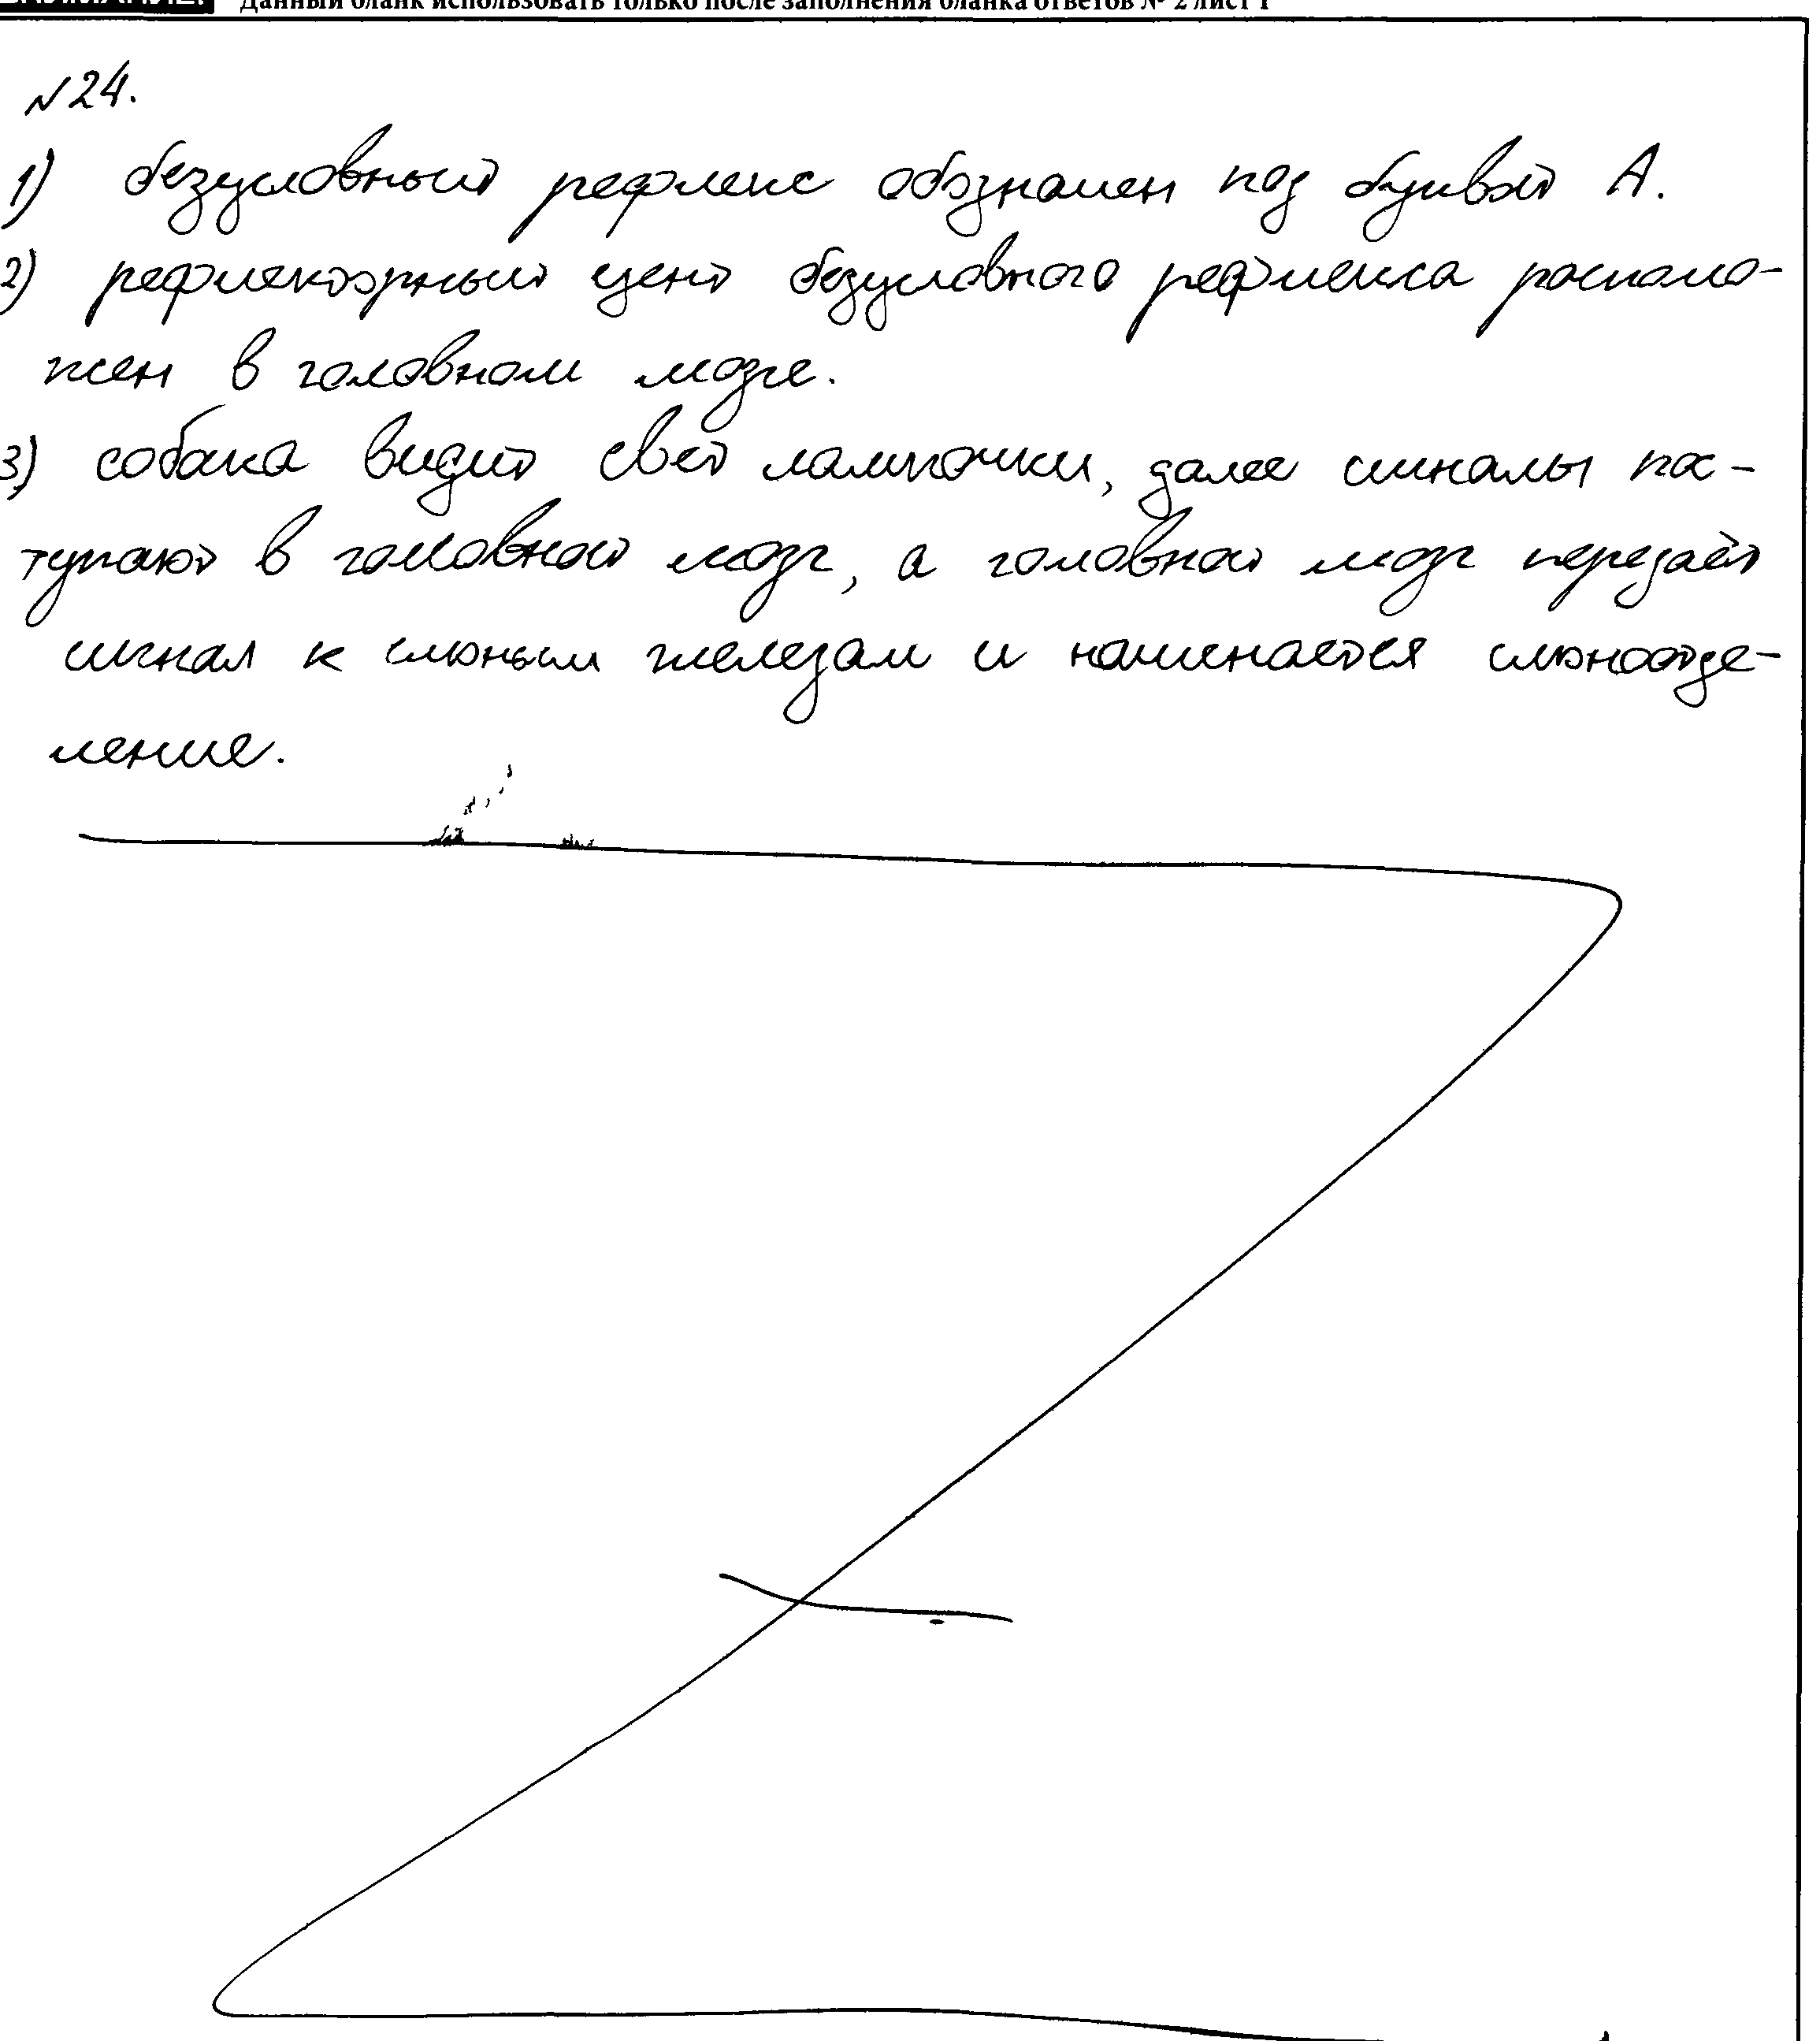 Данный бланк использовать только после заполнения бланка ответов № 2 лист 1
№24.
1) безусловный рефлекс обозначен под буквой А.
2) рефлекторный цент безусловного рефлекса располо-
жен в головном мозге.
3) собака видит свет лампочки, далее сигналы пос-
тупают в головной мозг, а головной мозг передаёт
сигнал к слюным железам и начинается слюноотде-
ление.